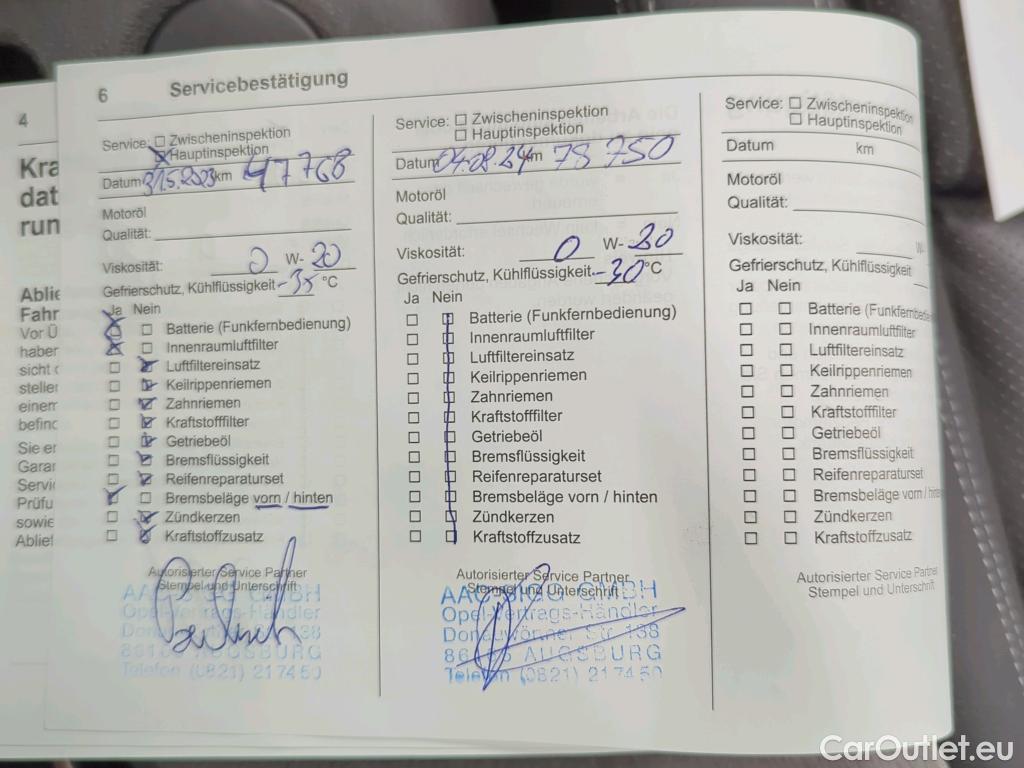 4
Kra
dat
run
Ablie
Fahr
Vor Ü
haber
sicht
steller
einem
befind
Sie er
Garar
Servi
Prüfu
sowie
Ablief
6 Servicebestätigung
Service: Zwischeninspektion
Hauptinspektion
Datum 31.5.2023 km 47768
Motoröl
Qualität:
Viskosität: 0 W- 20
Gefrierschutz, Kühlflüssigkeit -35 °C
Ja Nein
Batterie (Funkfernbedienung)
Innenraumluftfilter
Luftfiltereinsatz
Keilrippenriemen
Zahnriemen
Kraftstofffilter
Getriebeöl
Bremsflüssigkeit
Reifenreparaturset
Bremsbeläge vorn / hinten
Zündkerzen
Kraftstoffzusatz
Autorisierter Service Partner
Stempel und Unterschrift
GMBH
Opel-Vertrags-Händler
138
AUGSBURG
Telefon (0821) 217450
Service: Zwischeninspektion
Hauptinspektion
Datum 04.08.24 km 78 750
Motoröl
Qualität:
Viskosität: 0 W- 20
Gefrierschutz, Kühlflüssigkeit -30 °C
Ja Nein
Batterie (Funkfernbedienung)
Innenraumluftfilter
Luftfiltereinsatz
Keilrippenriemen
Zahnriemen
Kraftstofffilter
Getriebeöl
Bremsflüssigkeit
Reifenreparaturset
Bremsbeläge vorn / hinten
Zündkerzen
Kraftstoffzusatz
Autorisierter Service Partner
Stempel und Unterschrift
GMBH
Opel-Vertrags-Händler
Str. 138
AUGSBURG
Telefon (0821) 217450
Service: Zwischeninspektion
Hauptinspektion
Datum km
Motoröl
Qualität:
Viskosität: W-
Gefrierschutz, Kühlflüssigkeit
Ja Nein
Batterie (Funkfernbedie
Innenraumluftfilter
Luftfiltereinsatz
Keilrippenriemen
Zahnriemen
Kraftstofffilter
Getriebeöl
Bremsflüssigkeit
Reifenreparaturset
Bremsbeläge vorn / hinten
Zündkerzen
Kraftstoffzusatz
Autorisierter Service Partner
Stempel und Unterschrift
CarOutlet.eu